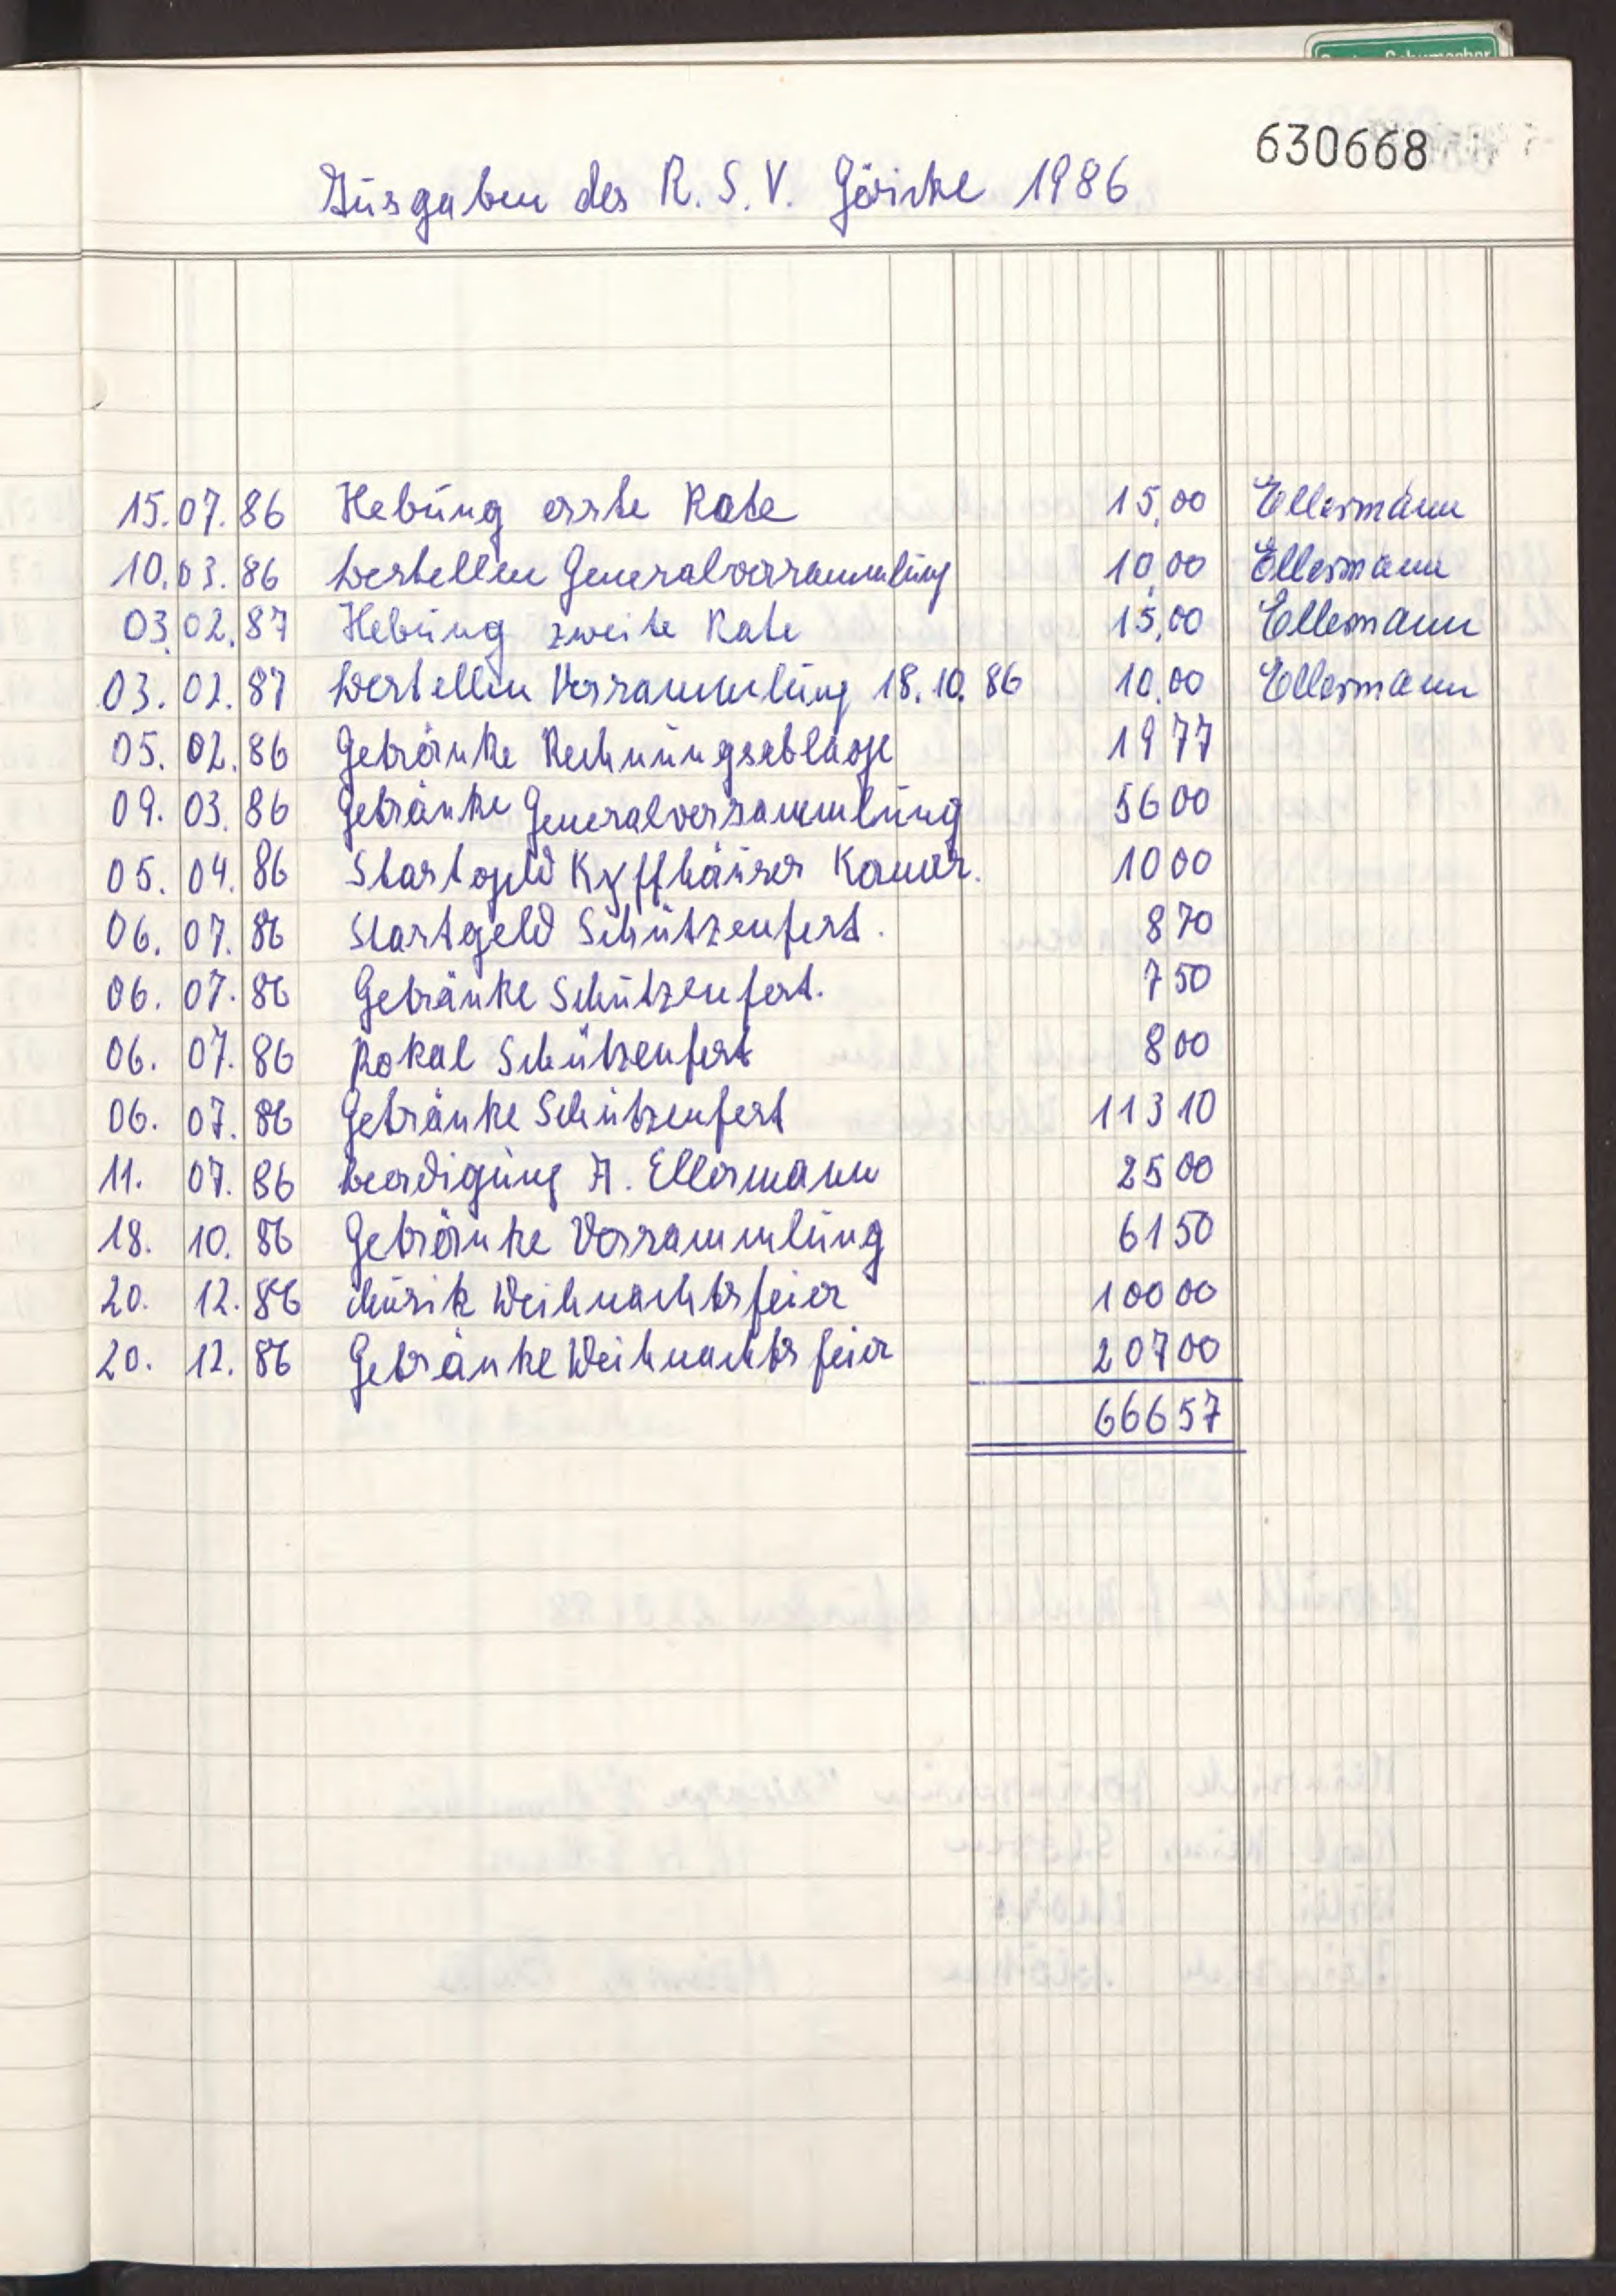 630668
Ausgaben des R. S. V. Göricke 1986
15. 07. 86 Hebung erste Rate 15,00 Ellermann
10. 03. 86 bestellen Generalversammlung 10,00 Ellermann
03. 02. 87 Hebung zweite Rate 15,00 Ellermann
03. 02. 87 bestellen Versammlung 18. 10. 86 10,00 Ellermann
05. 02. 86 Getränke Rechnungsablage 19 77
09. 03. 86 Getränke Generalversammlung 56 00
05. 04. 86 Startgeld Kyffhäuser Kamer. 10 00
06. 07. 86 Startgeld Schützenfest. 8 70
06. 07. 86 Getränke Schützenfest. 7 50
06. 07. 86 Pokal Schützenfest 8 00
06. 07. 86 Getränke Schützenfest 113 10
11. 07. 86 Beerdigung A. Ellermann 25 00
18. 10. 86 Getränke Versammlung 61 50
20. 12. 86 Musik Weihnachtsfeier 100 00
20. 12. 86 Getränke Weihnachtsfeier 207 00
666 57